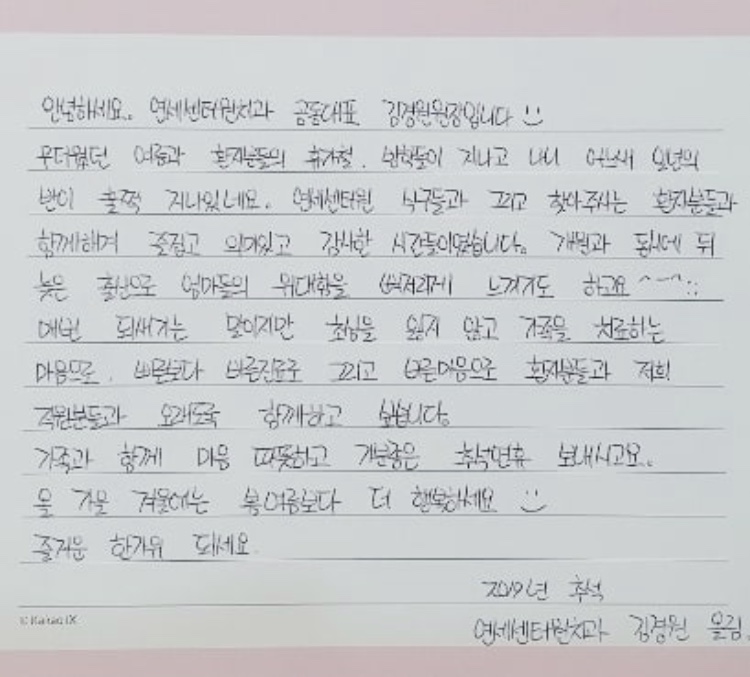 안녕하세요. 연세센터원치과 공동대표 김경원원장입니다 :)
무더웠던 여름과 환자분들의 휴가철, 방학들이 지나고 나니 어느새 일년의
반이 훌쩍 지나있네요. 연세센터원 식구들과 그리고 찾아주시는 환자분들과
함께해며 즐겁고 의미있고 감사한 시간들이였습니다. 개원과 동시에 뒤
늦은 출산으로 엄마들의 위대함을 뼈저리게 느끼기도 하고요 ^~^;;
매번 되새기는 말이지만 초심을 잃지 않고 가족을 치료하는
마음으로, 빠름보다 바른진료로 그리고 바른마음으로 환자분들과 저희
직원분들과 오래도록 함께하고 싶습니다.
가족과 함께 마음 따뜻하고 기분좋은 추석연휴 보내시고요.
올 가을 겨울에는 봄여름보다 더 행복하세요 :)
즐거운 한가위 되세요
2019년 추석
연세센터원치과 김경원 올림.
© Kakao IX